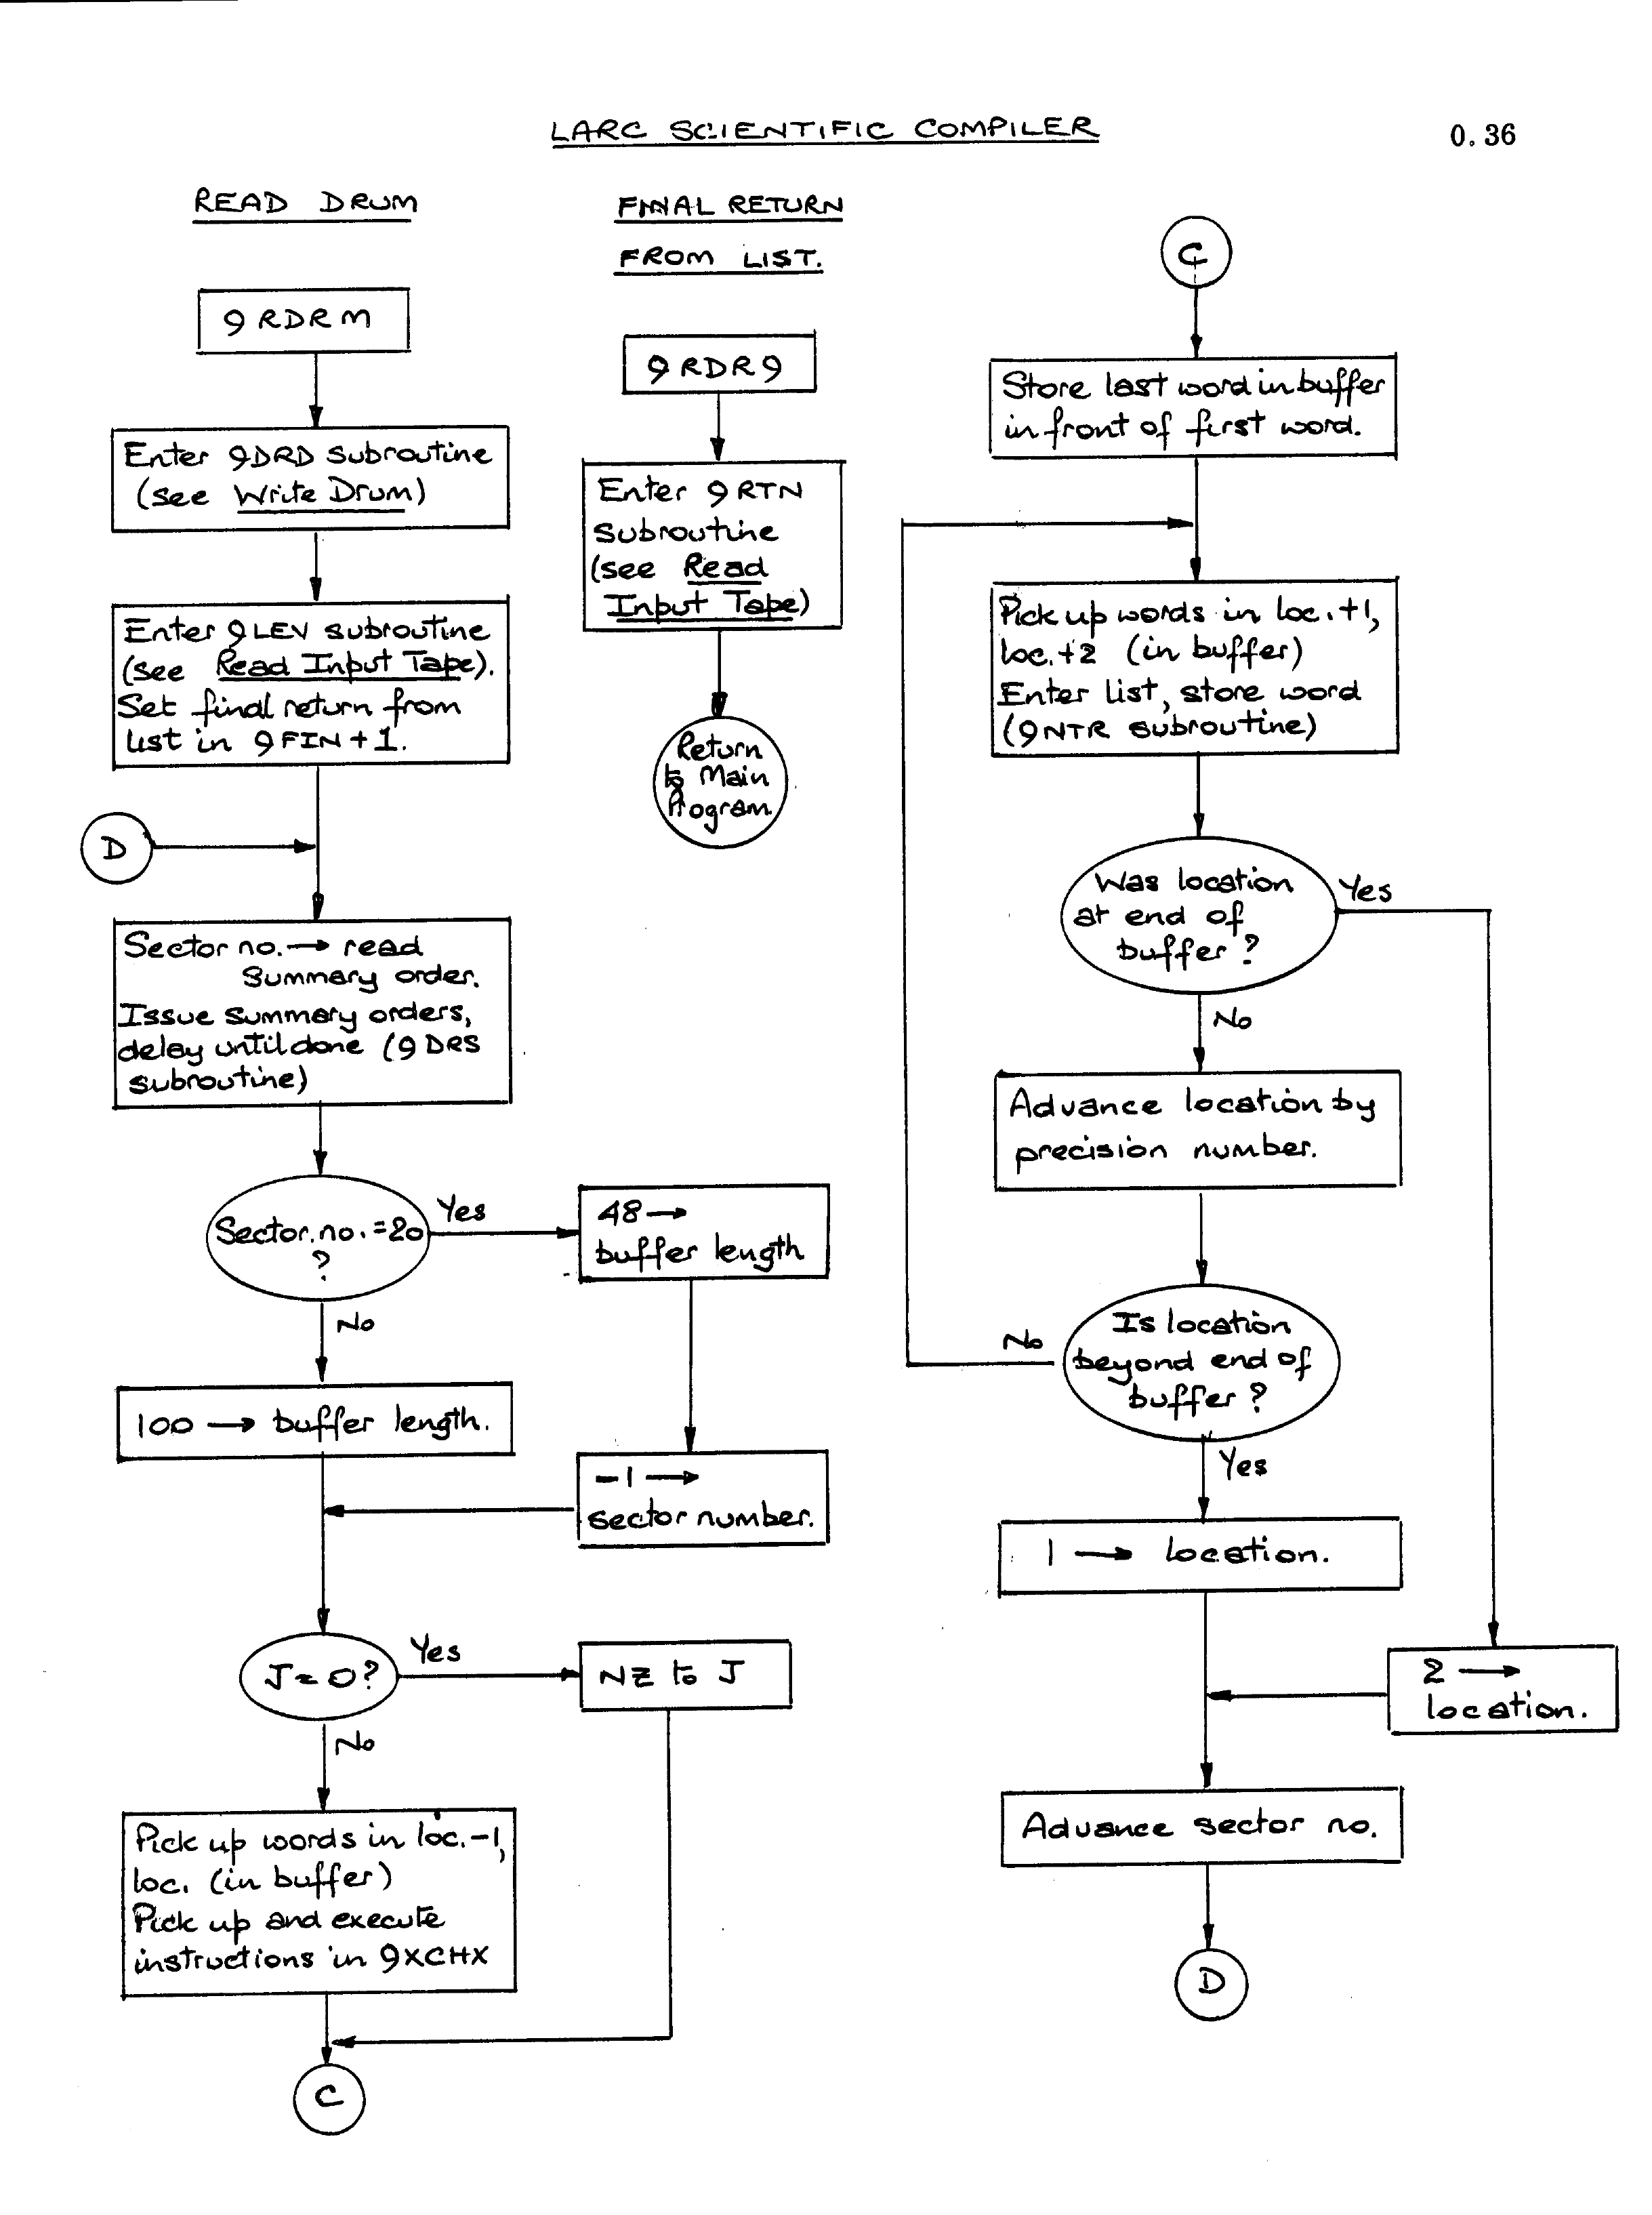 LARC SCIENTIFIC COMPILER
0.36
READ DRUM
9RDRM
Enter 9DRD subroutine
(see Write Drum)
Enter 9LEV subroutine
(see Read Input Tape).
Set final return from
list in 9FIN+1.
D
Sector no. → read
summary order.
Issue summary orders,
delay until done (9DRS
subroutine)
Sector no. = 20
?
Yes
48 →
buffer length
No
100 → buffer length.
-1 →
sector number.
J = 0?
Yes
NZ to J
No
Pick up words in loc.-1,
loc. (in buffer)
Pick up and execute
instructions in 9XCHX
C
FINAL RETURN
FROM LIST.
9RDR9
Enter 9RTN
subroutine
(see Read
Input Tape)
Return
to Main
Program
C
Store last word in buffer
in front of first word.
Pick up words in loc.+1,
loc.+2 (in buffer)
Enter list, store word
(9NTR subroutine)
Was location
at end of
buffer?
Yes
No
Advance location by
precision number.
Is location
beyond end of
buffer?
No
Yes
1 → location.
2 →
location.
Advance sector no.
D